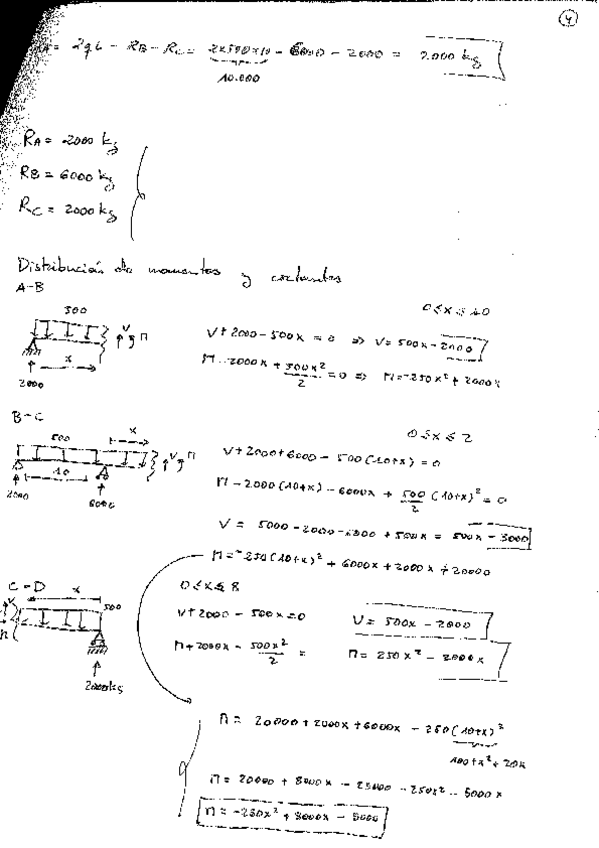 4
= 2qL - RB - Rc = 2x500x10 - 6000 - 2000 = 2.000 kg
10.000
RA = 2000 kg
RB = 6000 kg
Rc = 2000 kg
Distribución de momentos y cortantes
A-B
0 ≤ x ≤ 10
500
V M
x
2000
V + 2000 - 500x = 0 => V = 500x - 2000
M - 2000x + 500x²/2 = 0 => M = -250x² + 2000x
B-C
0 ≤ x ≤ 2
500
x
V M
10
2000
6000
V + 2000 + 6000 - 500(10+x) = 0
M - 2000(10+x) - 6000x + 500/2 (10+x)² = 0
V = 5000 - 2000 - 6000 + 500x = 500x - 3000
M = -250(10+x)² + 6000x + 2000x + 20000
C-D
0 < x ≤ 8
x
500
V
M
2000 kg
V + 2000 - 500x = 0
V = 500x - 2000
M + 2000x - 500x²/2 =
M = 250x² - 2000x
M = 20000 + 2000x + 6000x - 250(10+x)²
100 + x² + 20x
M = 20000 + 8000x - 25000 - 250x² - 5000x
M = -250x² + 3000x - 5000